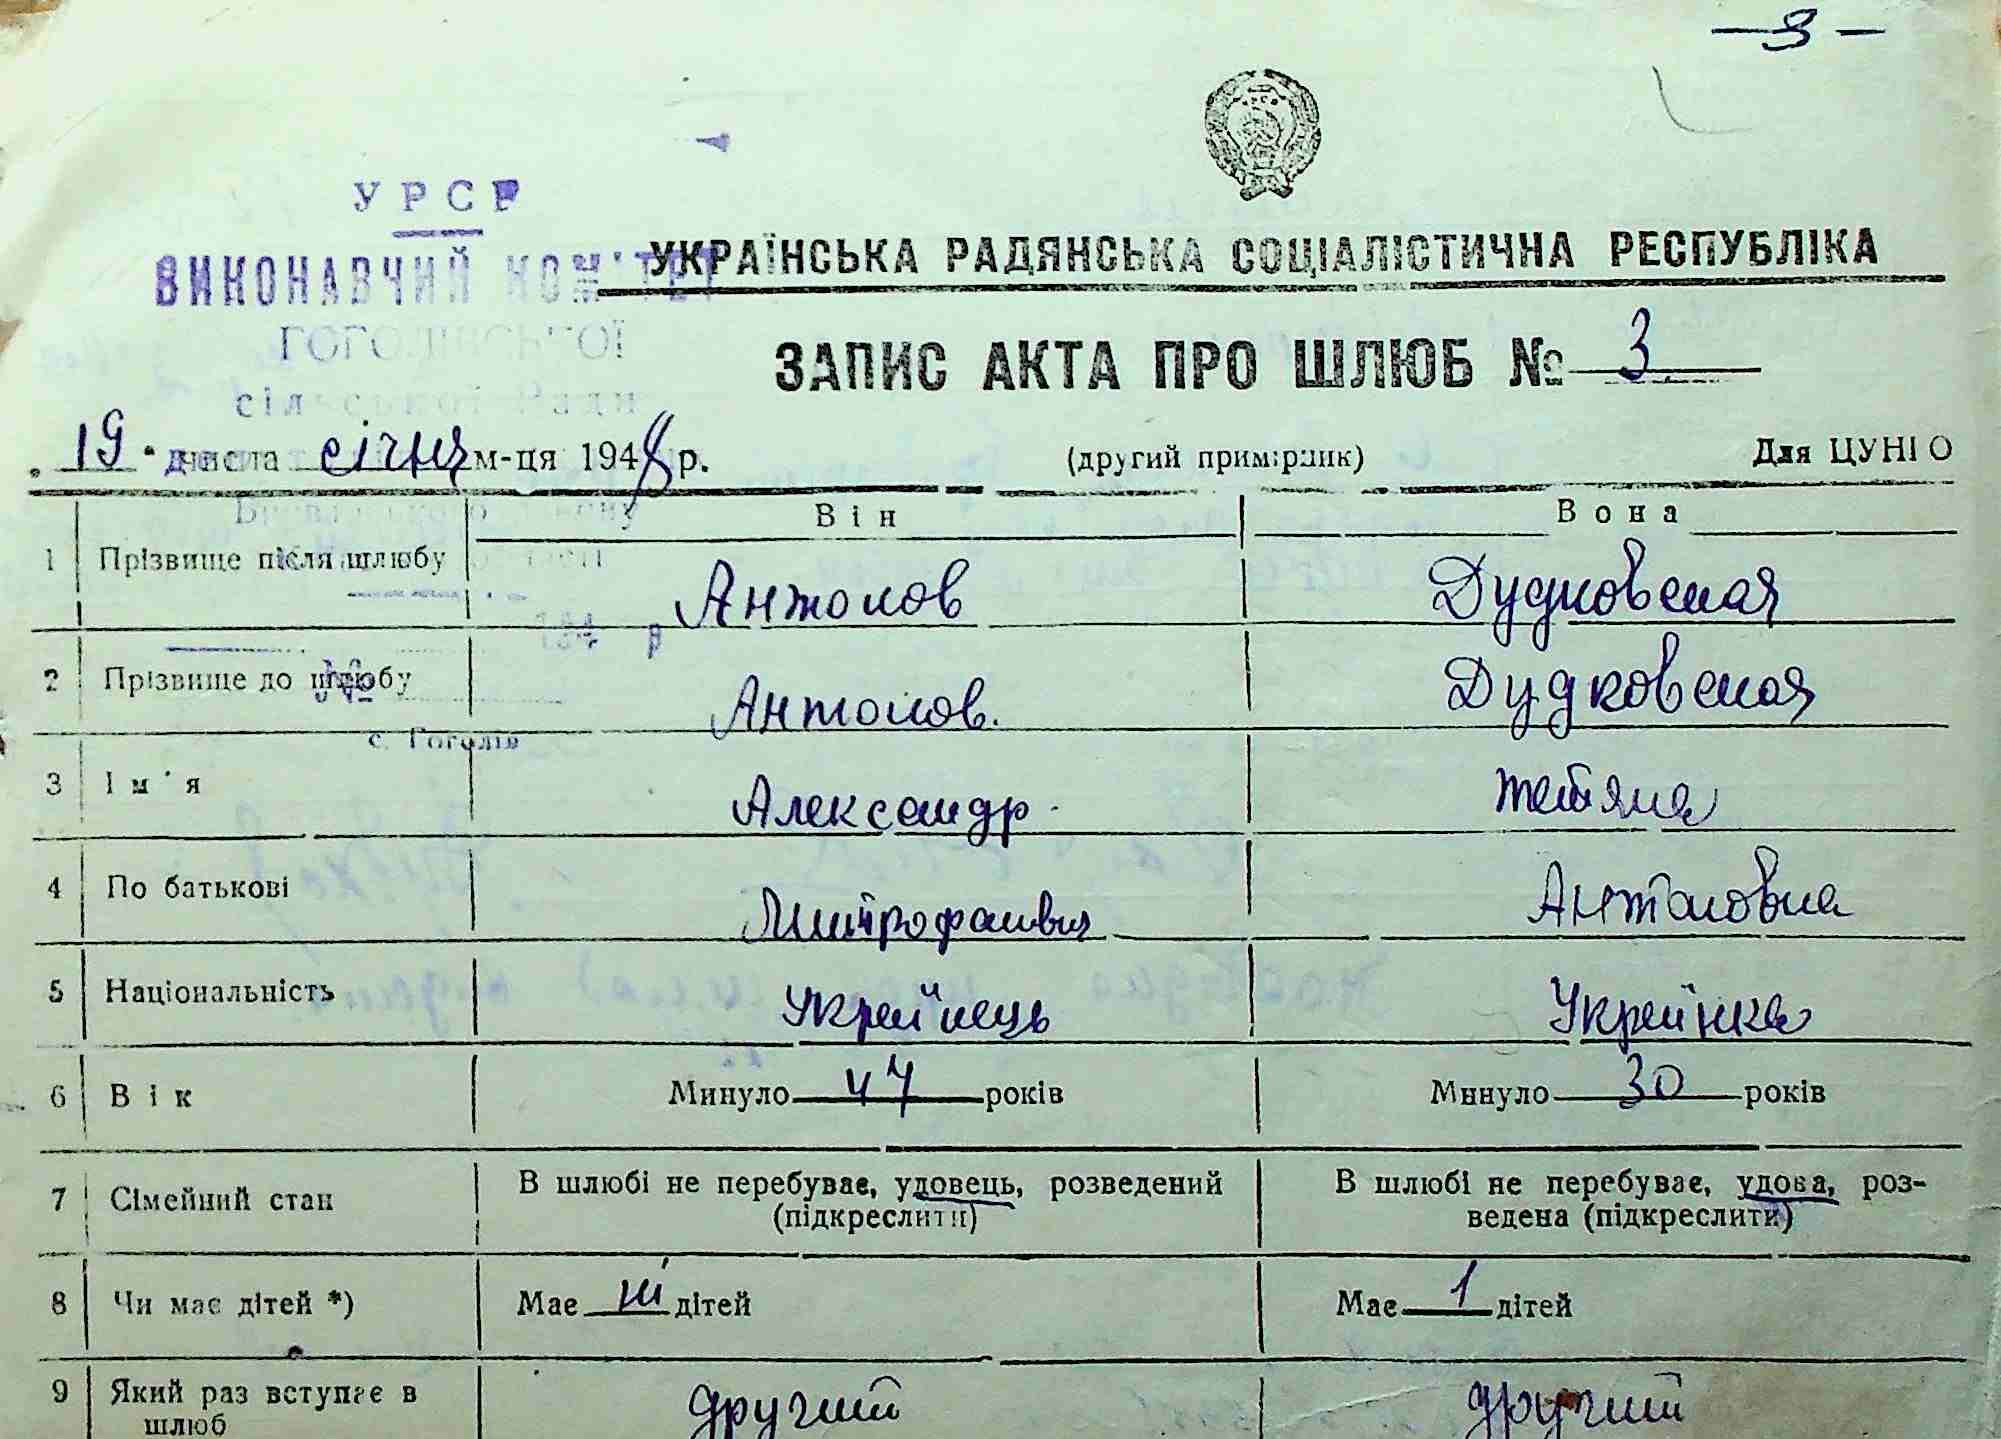 — 3 —
УРСР
ВИКОНАВЧИЙ КОМІТЕТ
ГОГОЛІВСЬКОЇ
сільської Ради
УКРАЇНСЬКА РАДЯНСЬКА СОЦІАЛІСТИЧНА РЕСПУБЛІКА
ЗАПИС АКТА ПРО ШЛЮБ № 3
19 числа січня м-ця 1948 р. (другий примірник) Для ЦУНГО
Він Вона
1 Прізвище після шлюбу Антонов Дудковская
194 р
2 Прізвище до шлюбу Антонов. Дудковская
№
с. Гоголів
3 Ім'я Александр Тетяна
4 По батькові Митрофанвич Антоновна
5 Національність Українець Українка
6 Вік Минуло 47 років Минуло 30 років
7 Сімейний стан В шлюбі не перебуває, удовець, розведений (підкреслити) В шлюбі не перебуває, удова, роз-
ведена (підкреслити)
8 Чи має дітей *) Має ні дітей Має 1 дітей
9 Який раз вступає в шлюб другий другий